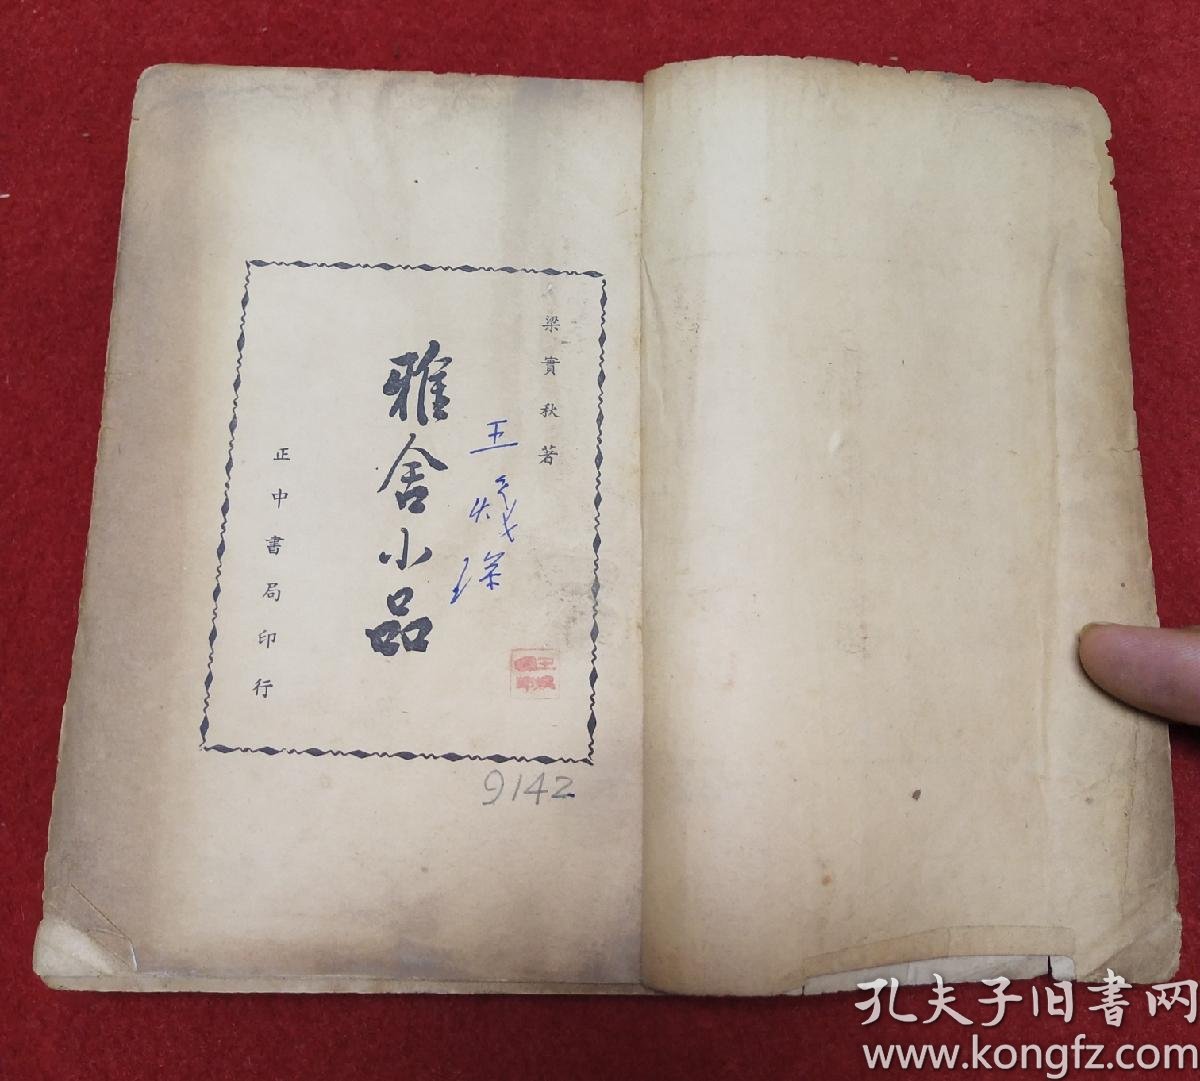 梁實秋著
雅舍小品
正中書局印行
9142
孔夫子旧書网
www.kongfz.com